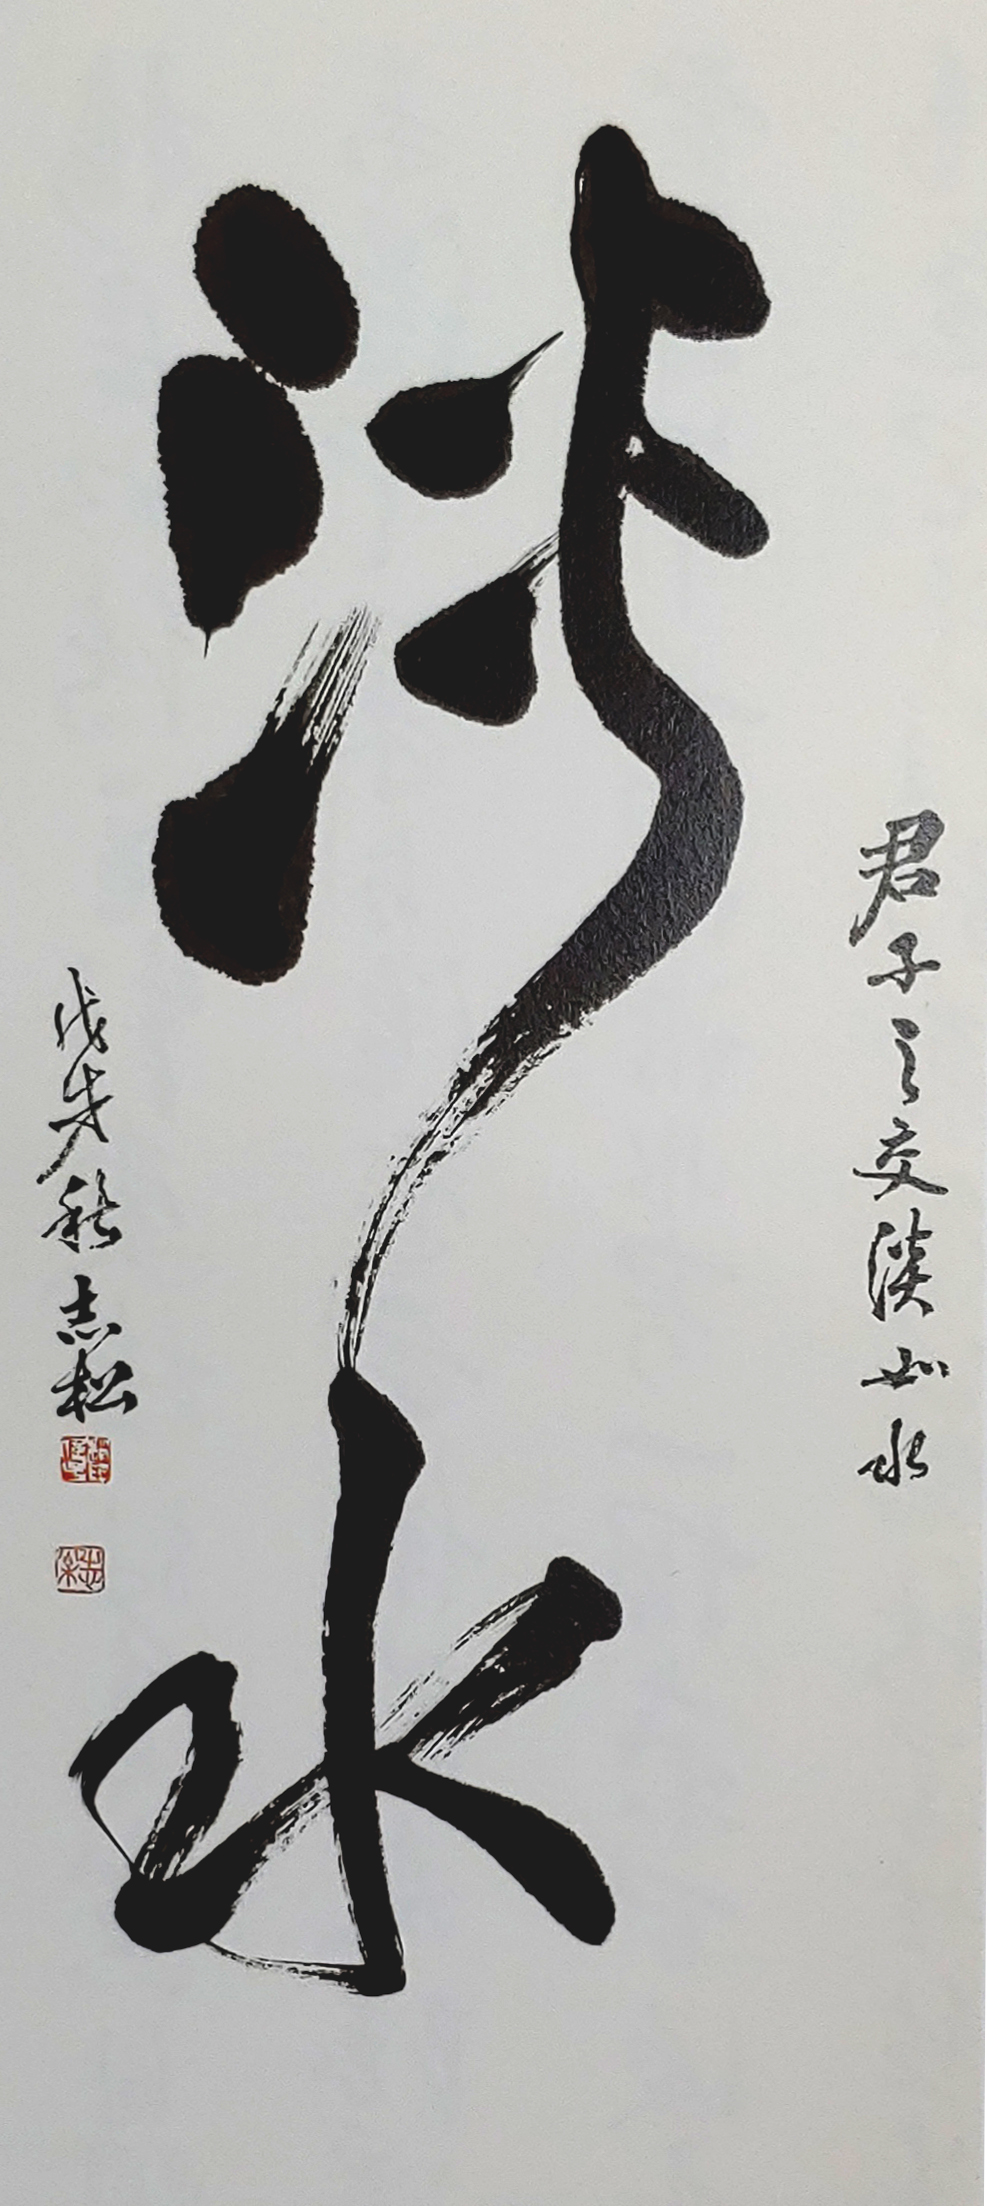 君子之交淡如水
淡水
戊戌秋志松